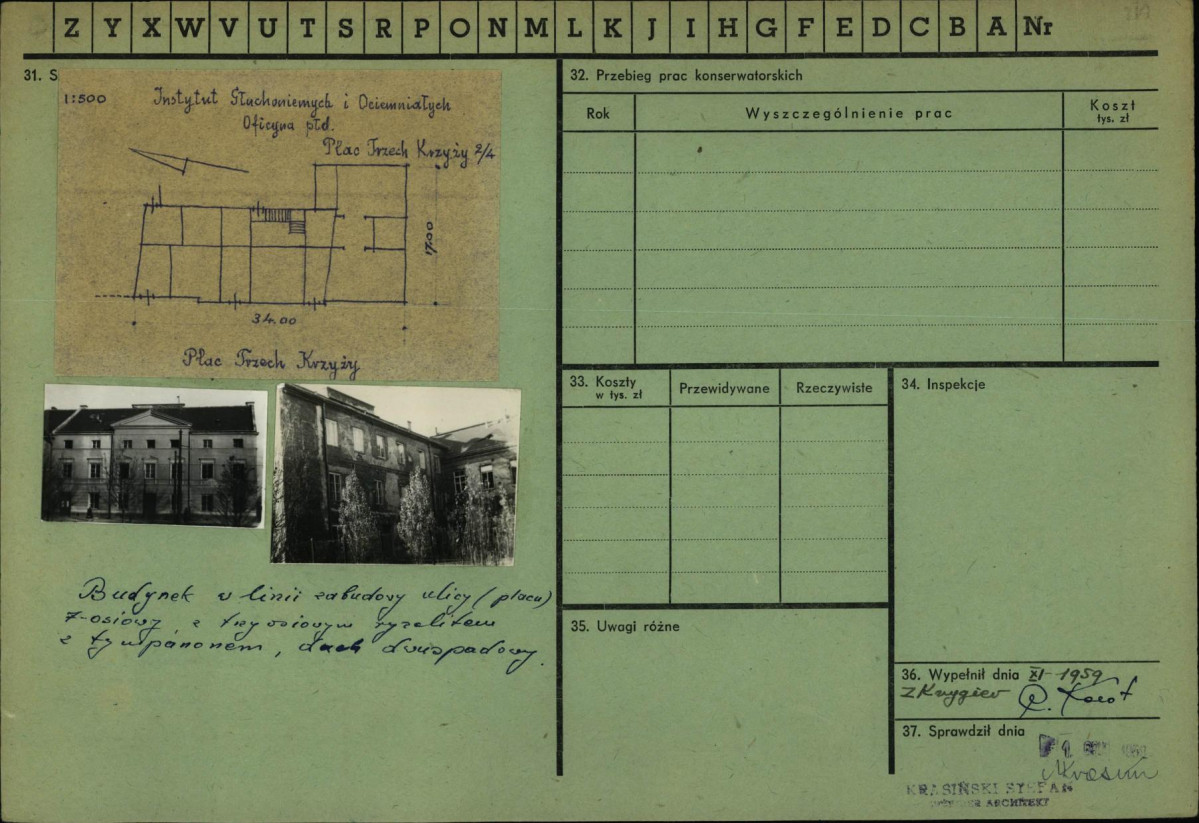 Z Y X W V U T S R P O N M L K J I H G F E D C B A Nr
31. S
1:500 Instytut Głuchoniemych i Ociemniałych
Oficyna płd.
Plac Trzech Krzyży 2/4
17.00
34.00
Plac Trzech Krzyży
Budynek w linii zabudowy ulicy (placu)
7-osiowy z trzyosiowym ryzalitem
z tympanonem, dach dwuspadowy.
32. Przebieg prac konserwatorskich
Rok Wyszczególnienie prac Koszt
tys. zł
33. Koszty
w tys. zł
Przewidywane Rzeczywiste
34. Inspekcje
35. Uwagi różne
36. Wypełnił dnia XI-1959
37. Sprawdził dnia
KRASIŃSKI STEFAN
ARCHITEKT